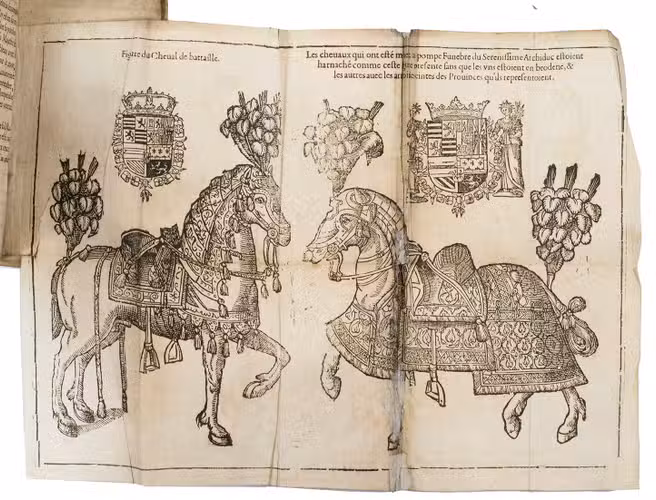 Figure du Cheual de battaille.
Les cheuaux qui ont esté a pompe Funebre du Serenissime Archiduc estoient
harnaché comme ceste presente sans que les vns estoient en broderie, &
les autres auec les des Prouinces qu'ils representoient.